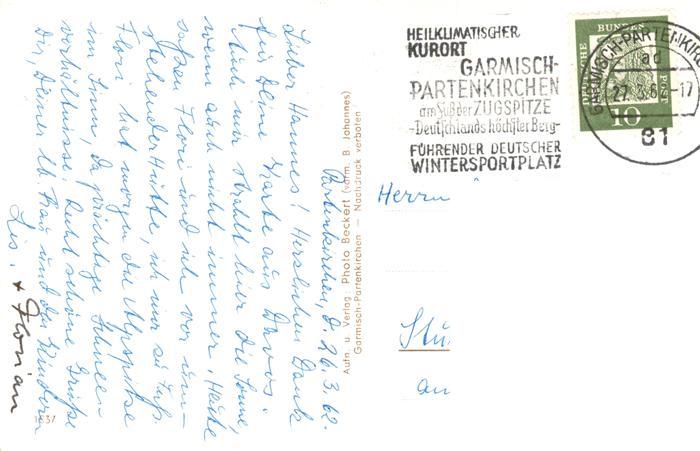 Partenkirchen, d. 26.3.62.
Lieber Hannes! Herzlichen Dank
für Deine Karte aus Davos.
Auch wir strahlt hier die Sonne,
wenn auch nicht immer. Heute
saßen Flori und ich vor um-
stehender Hütte, ich nur zu Fuß.
Flori hat morgen die Alpspitze
im Sinn. Da prächtige Schnee-
verhältnisse. Recht schöne Grüße
Dir, Deiner lb. Frau und den Kindern
Lis. + Florian
1537
Aufn. u. Verlag: Photo Beckert (vorm. B. Johannes)
Garmisch-Partenkirchen — Nachdruck verboten
HEILKLIMATISCHER
KURORT
GARMISCH-
PARTENKIRCHEN
am Fuß der ZUGSPITZE
-Deutschlands höchster Berg-
FÜHRENDER DEUTSCHER
WINTERSPORTPLATZ
DEUTSCHE BUNDESPOST
10
GARMISCH-PARTENKIRCHEN
ad
27.3.62-17
81
Herrn
Stu
an